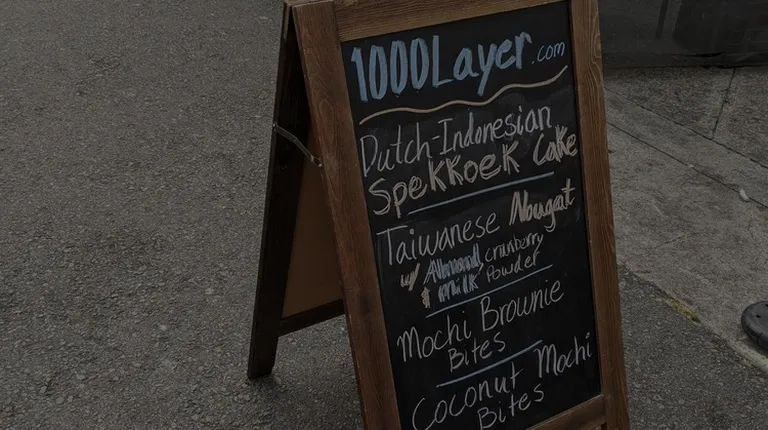 1000Layer.com
Dutch-Indonesian
Spekkoek Cake
Taiwanese Nougat
w/ Almond, cranberry
& Milk Powder
Mochi Brownie
Bites
Coconut Mochi
Bites